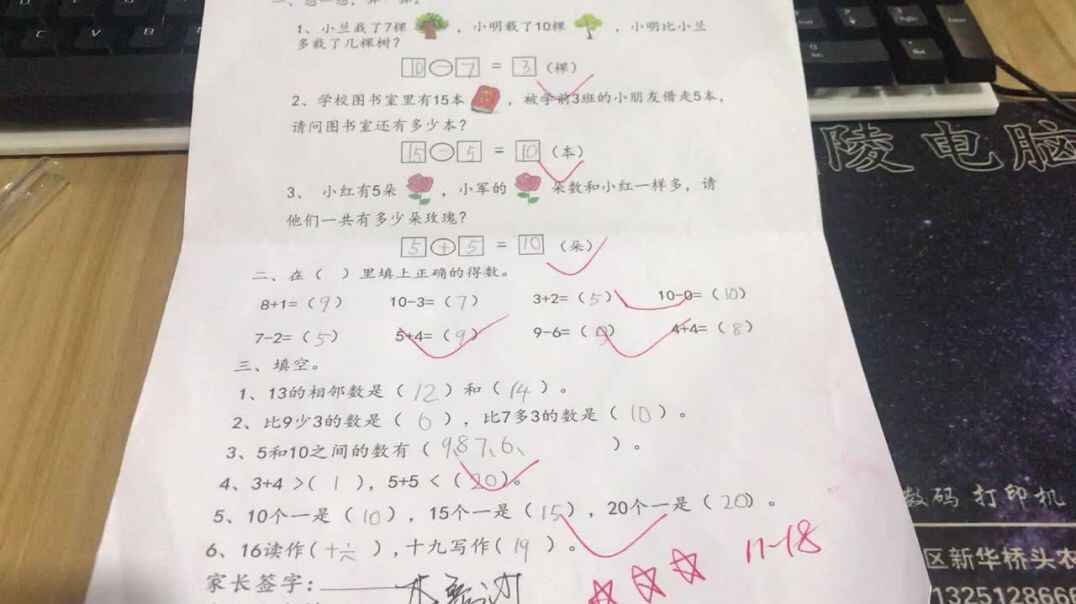 1、小兰栽了7棵 ，小明栽了10棵 ，小明比小兰
多栽了几棵树？
10 - 7 = 3 （棵）
2、学校图书室里有15本 ，被学前3班的小朋友借走5本，
请问图书室还有多少本？
15 - 5 = 10 （本）
3、 小红有5朵 ，小军的 朵数和小红一样多，请
他们一共有多少朵玫瑰？
5 + 5 = 10 （朵）
二、在（ ）里填上正确的得数。
8+1=（9） 10-3=（7） 3+2=（5） 10-0=（10）
7-2=（5） 5+4=（9） 9-6=（ ） 4+4=（8）
三、填空。
1、13的相邻数是（12）和（14）。
2、比9少3的数是（6），比7多3的数是（10）。
3、5和10之间的数有（9、8、7、6、 ）。
4、3+4 >（1），5+5 <（20）。
5、10个一是（10），15个一是（15），20个一是（20）。
6、16读作（十六），十九写作（19）。
家长签字：
11-18
陵电脑
数码 打印机
区新华桥头农
1325128666